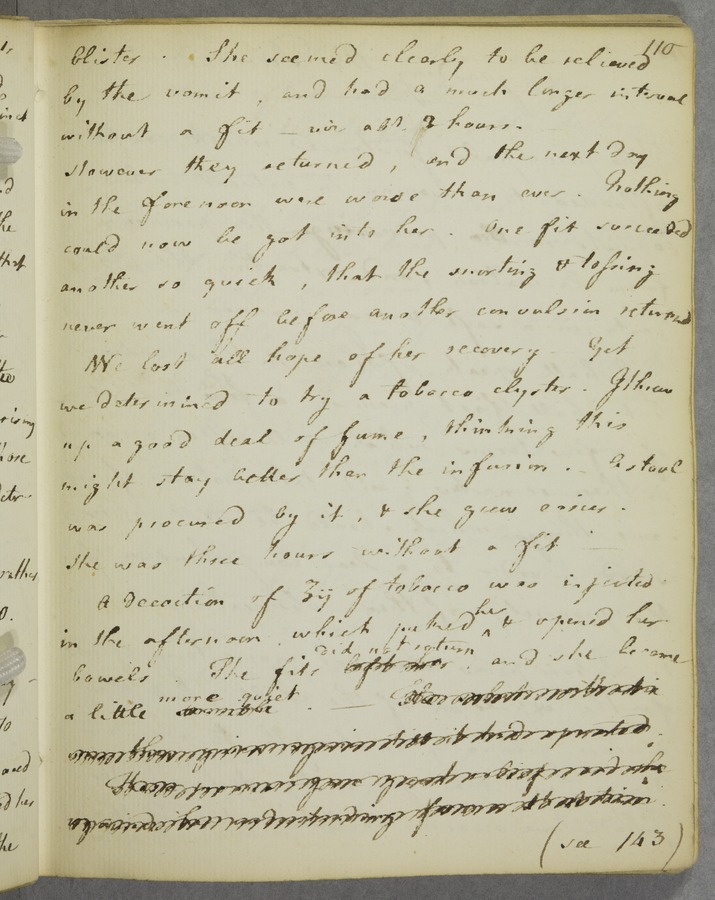 110
blister. She seemed clearly to be relieved
by the vomit, and had a much longer interval
without a fit – viz abt. 2 hours.
However they returned, and the next day
in the forenoon were worse than ever. Nothing
could now be got into her. One fit succeeded
another so quick, that the snorting & tossing
never went off before another convulsion returned
We lost all hope of her recovery. Yet
we determined to try a tobacco clyster. I threw
up a good deal of fume, thinking this
might stay better than the infusion. A stool
was procured by it, & she grew easier.
She was three hours without a fit –
A decoction of ʒij of tobacco was injected
in the afternoon, which puked her & opened her
bowels. The fits did not return, and she became
a little more quiet. —
(see 143)